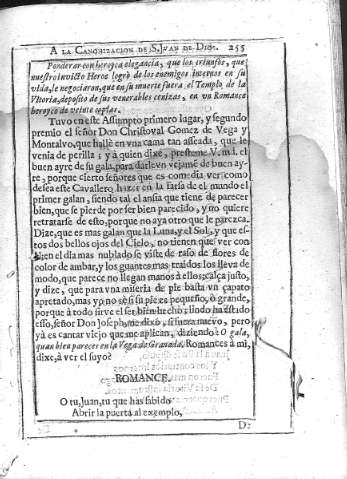 A LA CANONIZACION DE S. JUAN DE DIOS. 255
Ponderar con heroyca elegancia, que los triunfos, que
nuestro invicto Heroe logrò de los enemigos invernos en su
vida, le negociaron, que en su muerte fuera el Templo de la
Vitoria, deposito de sus venerables cenizas, en un Romance
heroyco de veinte coplas.
Tuvo en este Assumpto primero lugar, y segundo
premio el señor Don Christoval Gomez de Vega y
Montalvo, que hallè en vna cama tan asseada, que le
venia de perilla; y à quien dixe, presteme V.m.d. el
buen ayre de su gala, para darle vn vejamè de buen ay-
re, porque cierto señores que es comedia ver como
desea este Cavallero hazer en la farsa de el mundo el
primer galan, siendo tal el ansia que tiene de parecer
bien, que se pierde por ser bien parecido, y no quiere
retratarse de esto, porque no aya otro que le parezca.
Dize, que es mas galan que la Luna, y el Sol, y que es-
tos dos bellos ojos del Cielo, no tienen que ver con
èl; en el dia mas nublado se viste de raso de flores de
color de ambar, y los guantes mas traidos los lleva de
modo, que parece no llegan manos à ellos; calça justo,
y dize, que para vna miseria de pie basta vn çapato
apretado, mas yo no sè si su pie es pequeño, ò grande,
porque à todo sirve el ser bien hecho; lindo ha estado
esso, señor Don Joseph, me dixo, si fuera nuevo, pero
yà es cantar viejo que me aplican, diziendo: O gala,
quan bien pareces en la Vega de Granada. Romances à mi,
dixe, à ver el suyo?
ROMANCE.
O tu, Juan, tu que has sabido
Abrir la puerta al exemplo,
D: